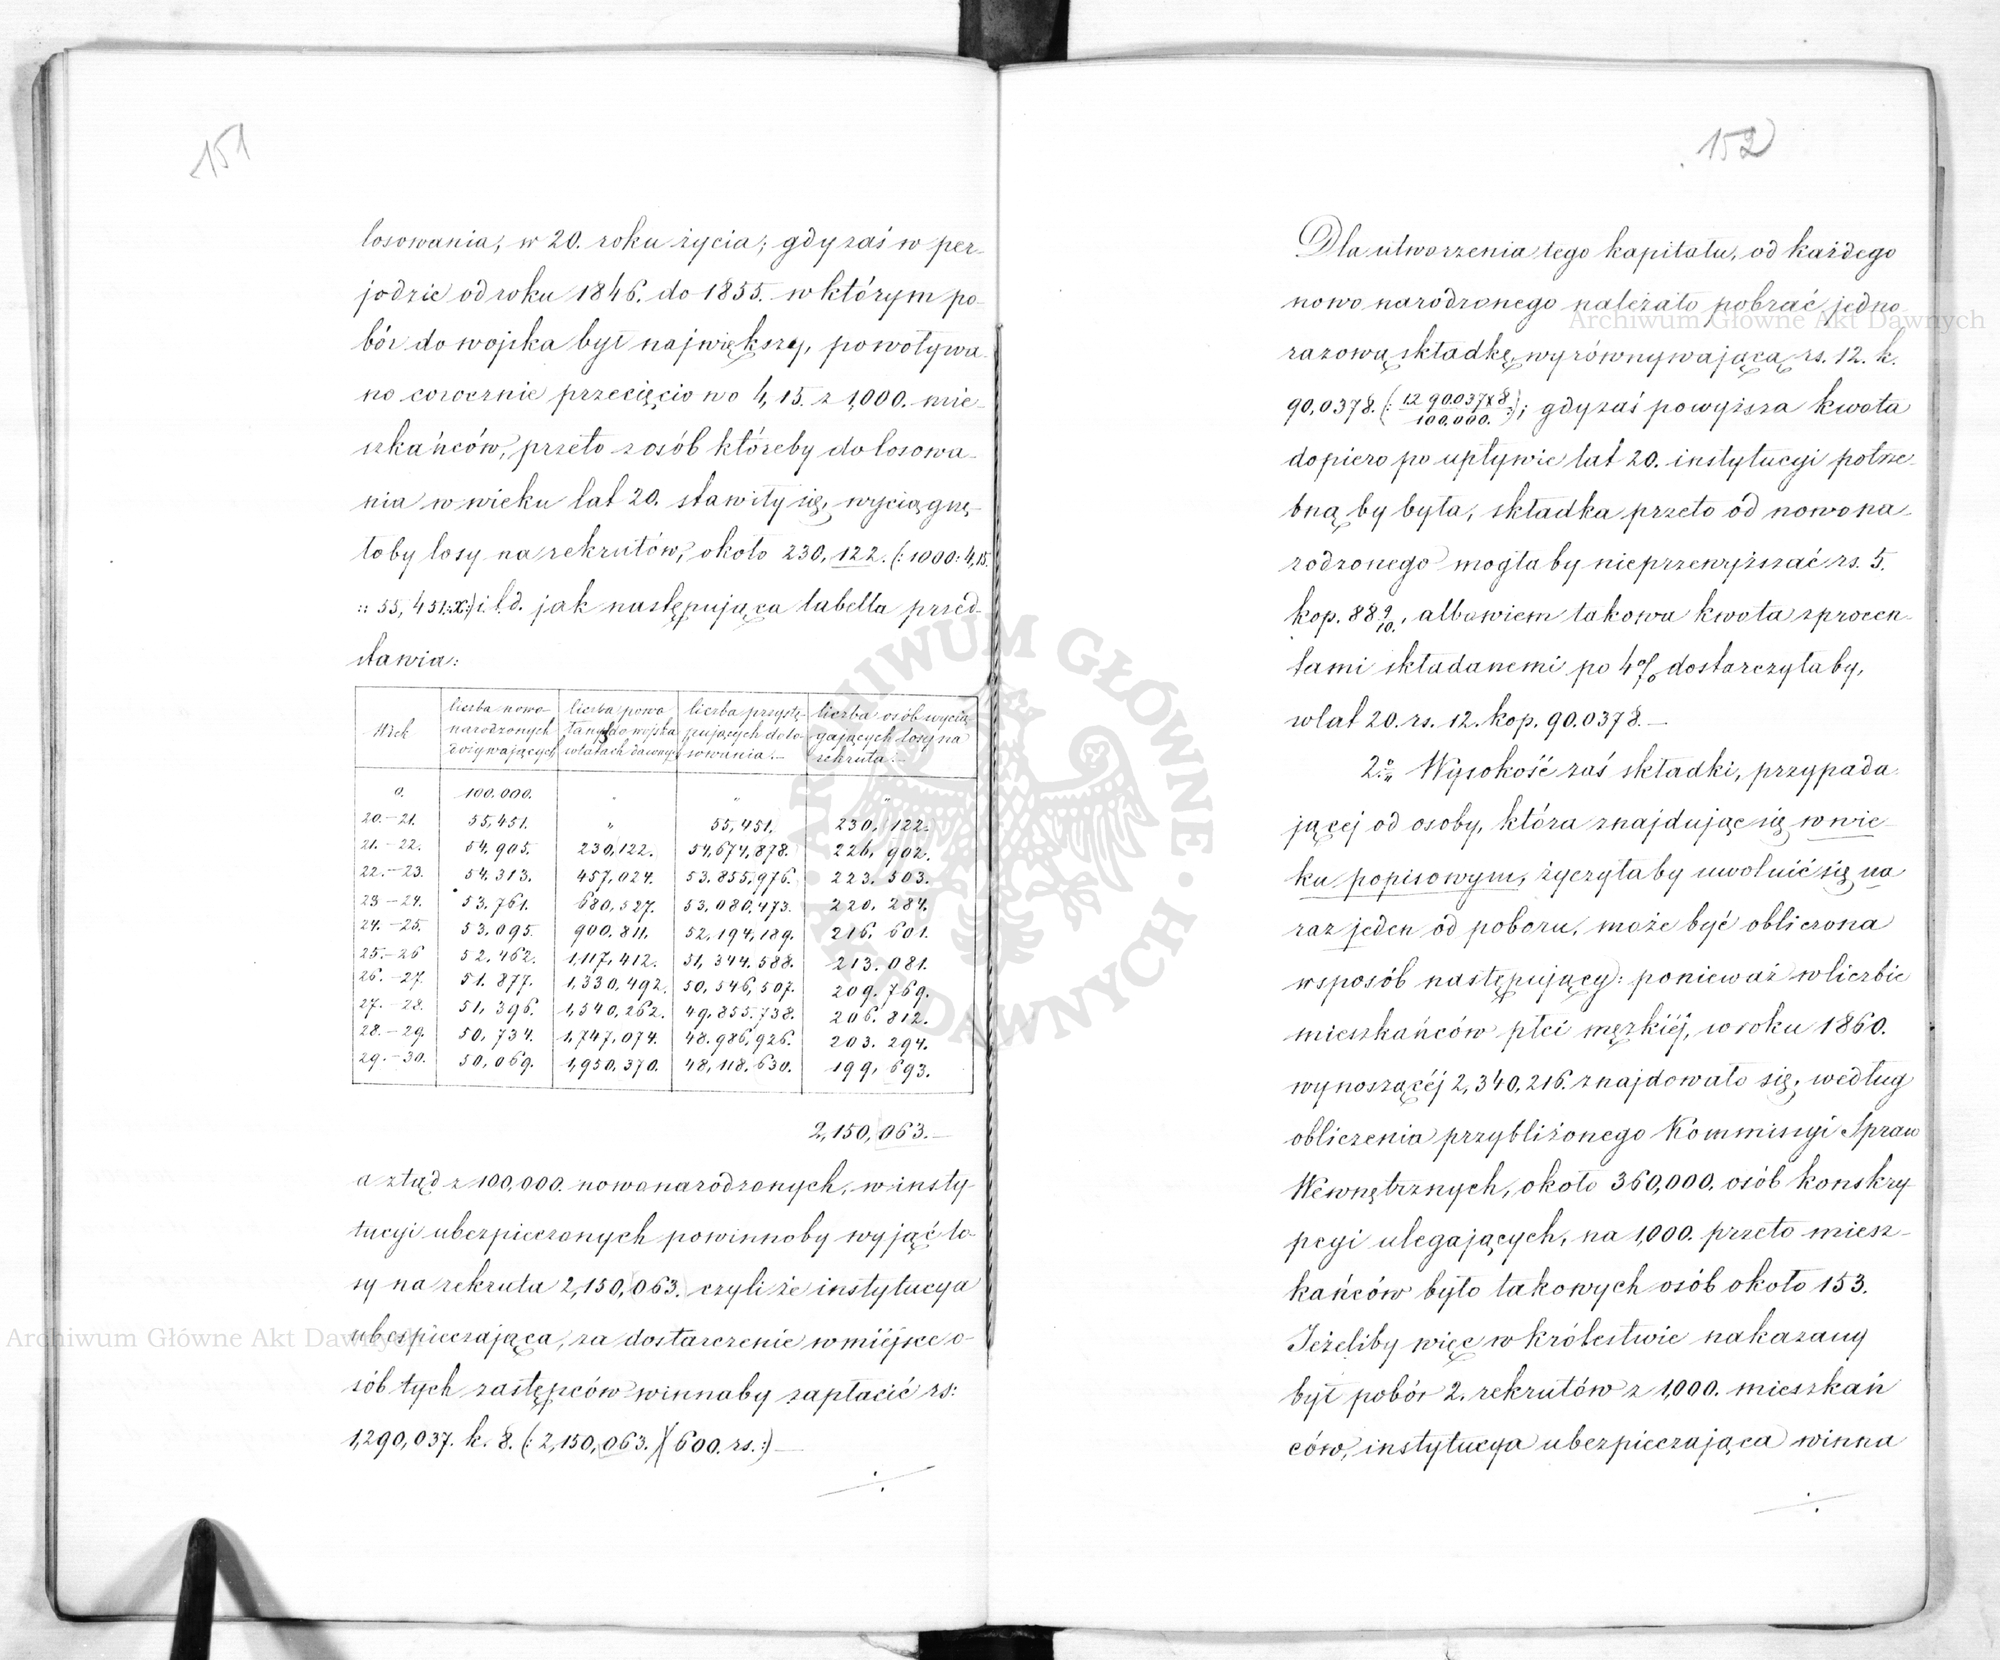 151
losowania, w 20. roku życia; gdy zaś w per-
jodzie od roku 1846. do 1855. w którym po-
bór do wojska był największy, powoływa-
no corocznie przecięciowo 4,15. z 1,000. mie-
szkańców, przeto z osób któreby do losowa-
nia w wieku lat 20. stawiły się, wyciągnę-
łoby losy na rekrutów, około 230,122. (: 1000: 4,15.
:: 55,451:x:) i t.d. jak następująca tabella przed-
stawia:
Wiek | liczba nowo narodzonych dożywających | liczba powołanych do wojska w latach dawnych | liczba przystępujących do losowania.— | liczba osób wyciągających losy na rekruta.—
0. | 100,000. | " | " | "
20.—21. | 55,451. | " | 55,451. | 230,122.
21.—22. | 54,905. | 230,122. | 54,674,878. | 226,902.
22.—23. | 54.313. | 457,024. | 53.855,976. | 223.503.
23—24. | 53,761. | 680,527. | 53,080,473. | 220.284.
24.—25. | 53,095. | 900.811. | 52,194,189. | 216.601.
25.—26 | 52,462. | 1,117,412. | 51,344.588. | 213.081.
26.—27. | 51.877. | 1,330,492. | 50,546,507. | 209.769.
27.—28. | 51,396. | 1,540,262. | 49,855.738. | 206.812.
28.—29. | 50,734. | 1,747,074. | 48.986,926. | 203.294.
29.—30. | 50,069. | 1,950,370. | 48,118.630. | 199,693.
2,150,063.—
a ztąd z 100,000. nowonarodzonych, w insty-
tucyi ubezpieczonych powinnoby wyjąć lo-
sy na rekruta 2,150,063. czyli że instytucya
ubezpieczająca, za dostarczenie w miejsce o-
sób tych zastępców winnaby zapłacić rs:
1,290,037. k. 8. (: 2,150,063.)(600. rs.:)—
152
Dla utworzenia tego kapitału, od każdego
nowo narodzonego należało pobrać jedno
razową składkę, wyrównywającą rs. 12. k.
90,0378. (: 12 90.037x8 / 100,000. :); gdy zaś powyższa kwota
dopiero po upływie lat 20. instytucyi potrze-
bną by była, składka przeto od nowona-
rodzonego mogłaby nieprzewyższać rs. 5.
kop. 88 9/10., albowiem takowa kwota z procen-
tami składanemi po 4% dostarczyłaby,
w lat 20. rs. 12. kop. 90.0378.—
2o Wysokość zaś składki, przypada-
jącej od osoby, która znajdując się w wie-
ku popisowym, życzyłaby uwolnić się na
raz jeden od poboru, może być obliczona
w sposób następujący: ponieważ w liczbie
mieszkańców płci męzkiéj, w roku 1860.
wynoszącéj 2,340,216. znajdowało się, według
obliczenia przybliżonego Kommissyi Spraw
Wewnętrznych, około 360,000. osób konskry
pcyi ulegających, na 1,000. przeto miesz-
kańców było takowych osób około 153.
Jeżeliby więc w królestwie nakazany
był pobór 2. rekrutów z 1,000. mieszkań
ców, instytucya ubezpieczająca winna
ARCHIWUM GŁÓWNE AKT DAWNYCH
Archiwum Główne Akt Dawnych
Archiwum Główne Akt Dawnych